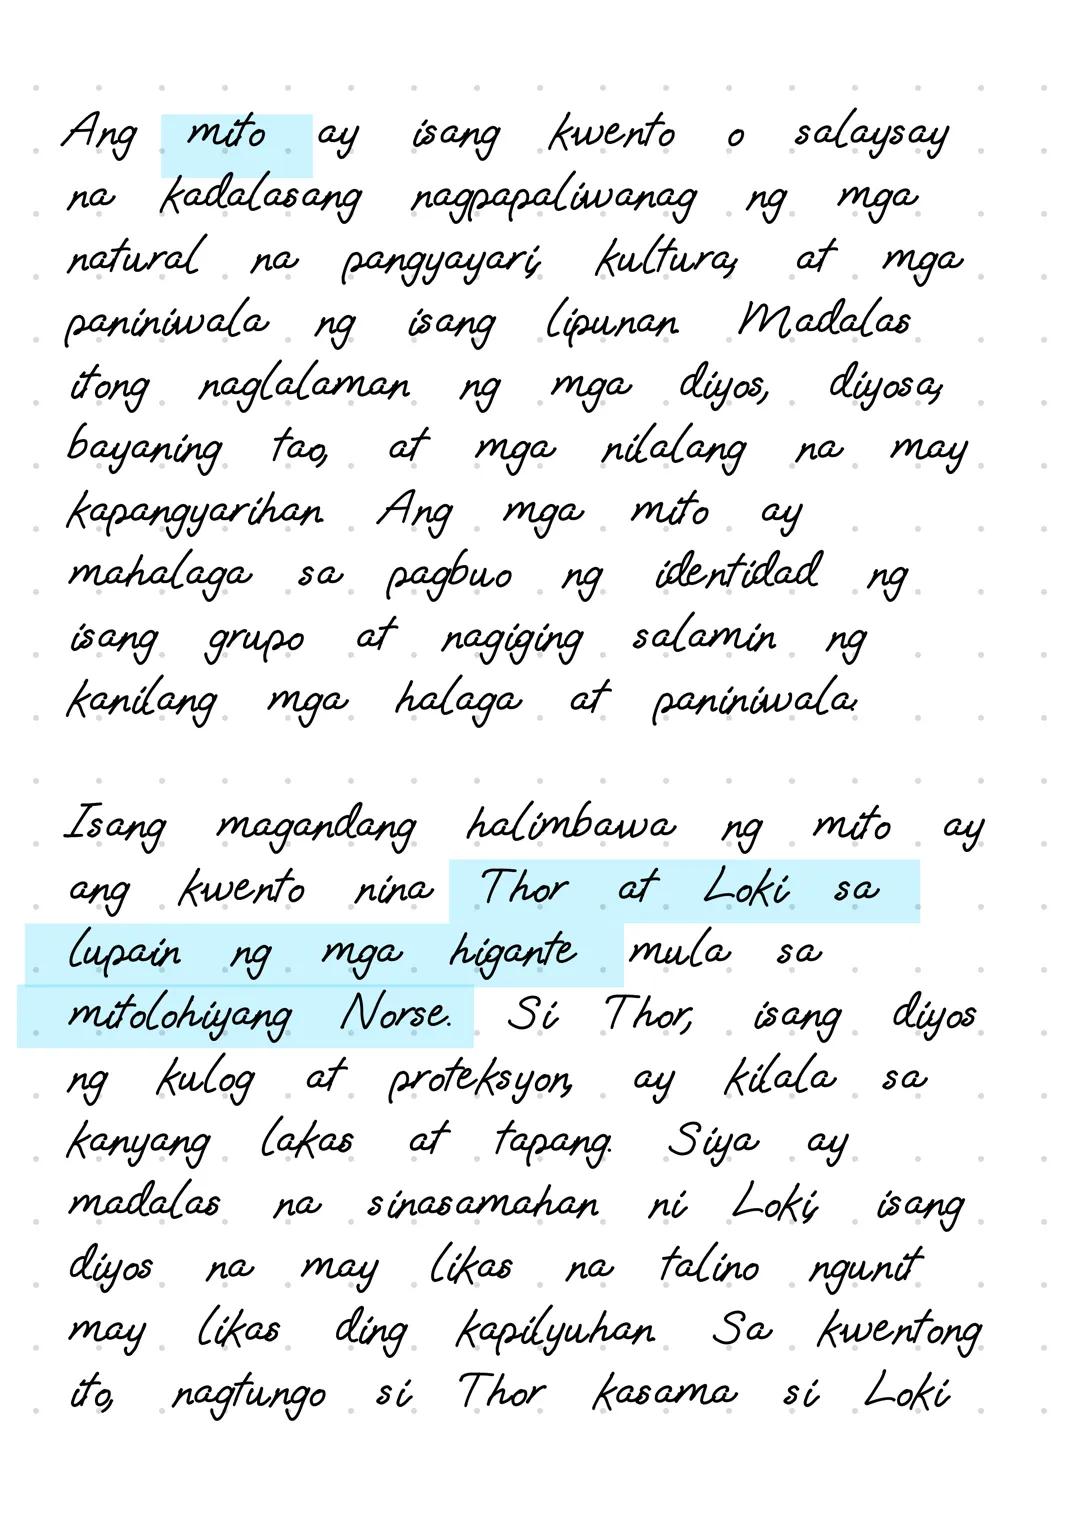 Ang mito ay isang kwento o salaysay
na kadalasang nagpapaliwanag ng mga
natural na pangyayari, kultura, at mga
paniniwala ng isang lipunan. Madalas
itong naglalaman ng mga diyos, diyosa,
bayaning tao, at mga nilalang na may
kapangyarihan. Ang mga mito ay
mahalaga sa pagbuo ng identidad ng
isang grupo at nagiging salamin ng
kanilang mga halaga at paniniwala.
Isang magandang halimbawa ng mito ay
ang kwento nina Thor at Loki sa
lupain ng mga higante mula sa
mitolohiyang Norse. Si Thor, isang diyos
ng kulog at proteksyon, ay kilala sa
kanyang lakas at tapang. Siya ay
madalas na sinasamahan ni Loki, isang
diyos na may likas na talino ngunit
may likas ding kapilyuhan. Sa kwentong
ito, nagtungo si Thor kasama si Loki